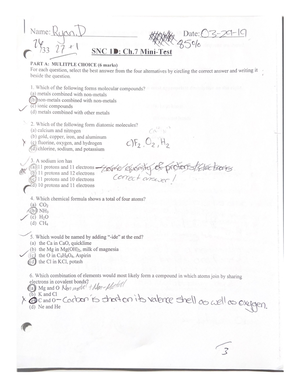 Name: Ryan.D Date: 03-29-19
24/33 27+1 85%
SNC 1D: Ch.7 Mini-Test
PART A: MULTIPLE CHOICE (6 marks)
For each question, select the best answer from the four alternatives by circling the correct answer and writing it beside the question.
1. Which of the following forms molecular compounds?
(a) metals combined with non-metals
(b) non-metals combined with non-metals
(c) ionic compounds
(d) metals combined with other metals
2. Which of the following form diatomic molecules?
(a) calcium and nitrogen
(b) gold, copper, iron, and aluminum
(c) fluorine, oxygen, and hydrogen F2, O2, H2
(d) chlorine, sodium, and potassium
3. A sodium ion has
(a) 11 protons and 11 electrons
(b) 11 protons and 12 electrons correct answer!
(c) 11 protons and 10 electrons
(d) 10 protons and 11 electrons
4. Which chemical formula shows a total of four atoms?
(a) CO2
(b) NH3
(c) H2O
(d) CH4
5. Which would be named by adding "-ide" at the end?
(a) the Ca in CaO, quicklime
(b) the Mg in Mg(OH)2, milk of magnesia
(c) the O in C9H8O4, Aspirin
(d) the Cl in KCl, potash
6. Which combination of elements would most likely form a compound in which atoms join by sharing
electrons in covalent bonds?
(a) Mg and O
(b) K and Cl
(c) C and O - Carbon is short on its valence shell as well as oxygen.
(d) Ne and He